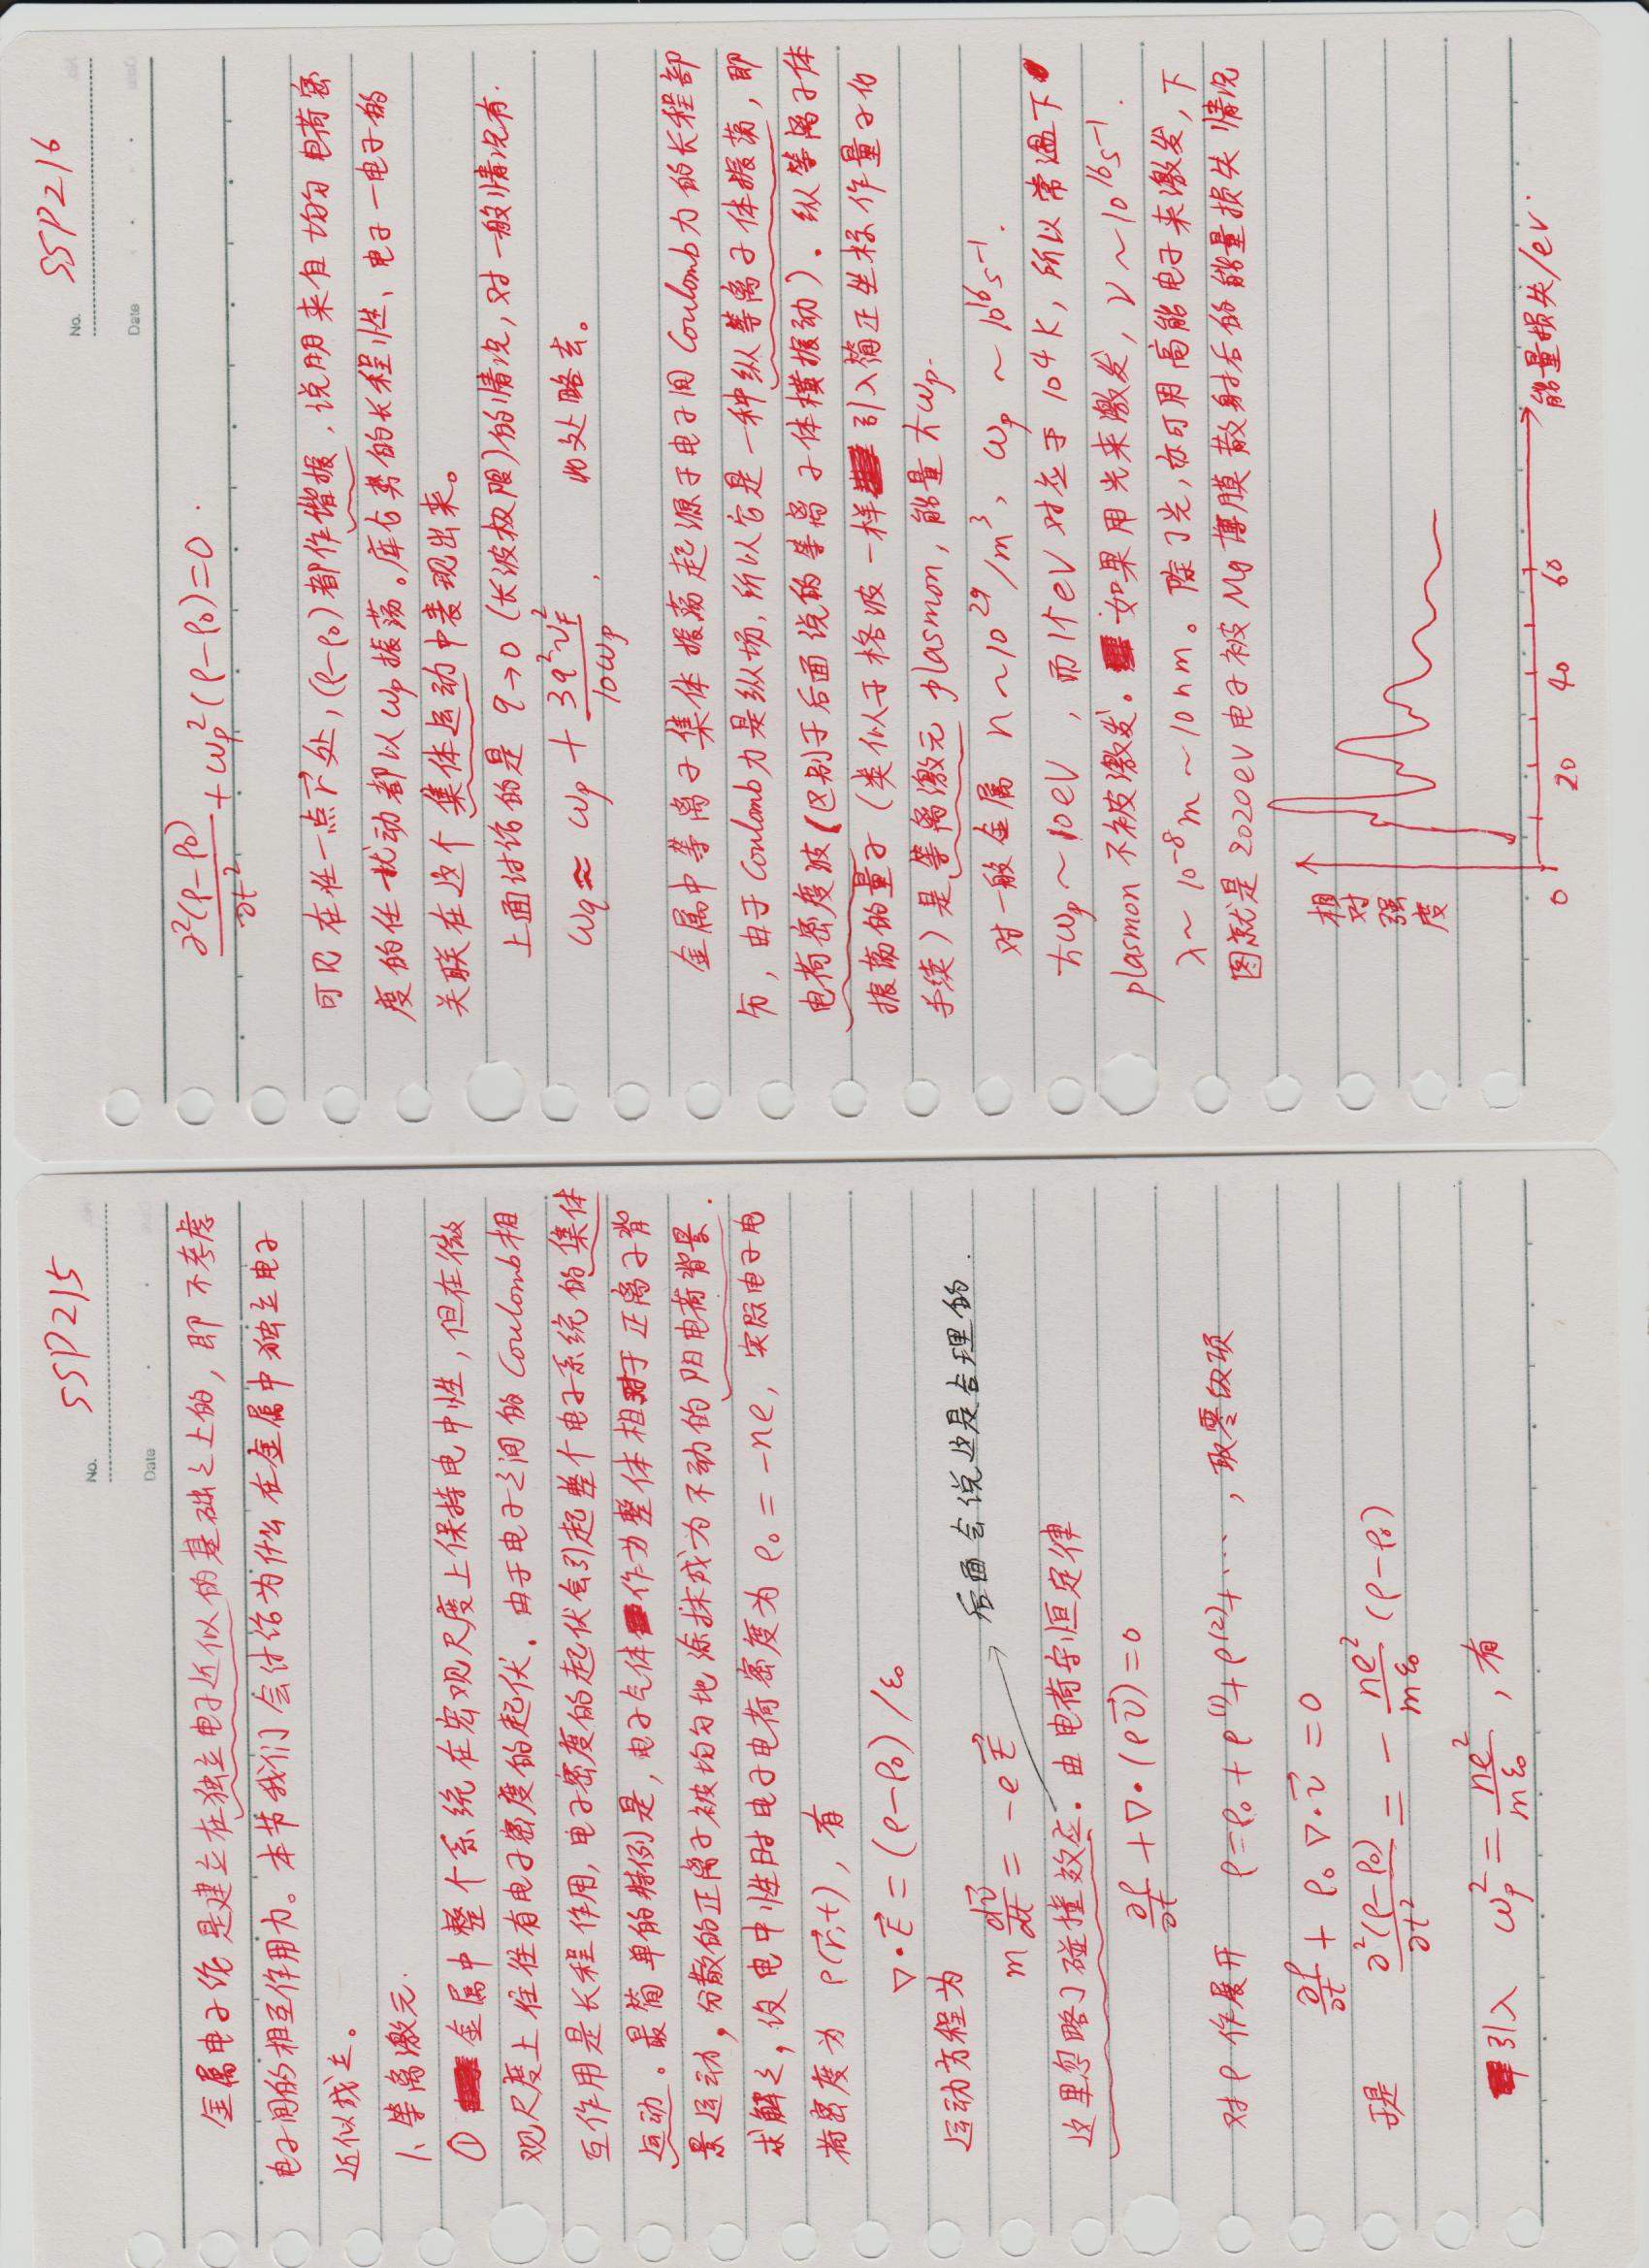 No. SSP215
Date
金属电子论是建立在独立电子近似的基础之上的，即不考虑
电子间的相互作用力。本节我们会讨论为什么在金属中独立电子
近似成立。
1、等离激元.
① 金属中整个系统在宏观尺度上保持电中性，但在微
观尺度上往往有电子密度的起伏．由于电子之间的Coulomb相
互作用是长程作用，电子密度的起伏会引起整个电子系统的集体
运动。最简单的特例是，电子气体作为整体相对于正离子背
景运动，分散的正离子被均匀地涂抹成为不动的阳电荷背景．
求解之，设电中性时电子电荷密度为 ρ₀ = -ne，实际电子电
荷密度为 ρ(r⃗,t)，有
∇·E⃗ = (ρ-ρ₀)/ε₀
运动方程为
m dv⃗/dt = -eE⃗
后面会说这是合理的．
这里忽略了碰撞效应．由电荷守恒定律
∂ρ/∂t + ∇·(ρv⃗) = 0
对ρ作展开 ρ=ρ₀+ρ⁽¹⁾+ρ⁽²⁾+…，取零级项
∂ρ/∂t + ρ₀∇·v⃗ = 0
于是 ∂²(ρ-ρ₀)/∂t² = - ne²/mε₀ (ρ-ρ₀)
引入 ωp² = ne²/mε₀，有
No. SSP216
Date
∂²(ρ-ρ₀)/∂t² + ωp²(ρ-ρ₀)=0．
可见在任一点r⃗处，(ρ-ρ₀)都作谐振，说明来自均匀电荷密
度的任一扰动都以ωp振荡。库仑势的长程性、电子一电子的
关联在这个集体运动中表现出来。
上面讨论的是 q→0 (长波极限)的情况，对一般情况有．
ωq ≈ ωp + 3q²vF²/10ωp， 此处略去。
金属中等离子集体振荡起源于电子间Coulomb力的长程部
分，由于Coulomb力是纵场，所以它是一种纵等离子体振荡，即
电荷密度波(区别于后面说的等离子体横振动)．纵等离子体
振荡的量子(类似于格波一样引入简正坐标作量子化
手续)是等离激元 plasmon，能量ħωp．
对一般金属 n～10²⁹/m³，ωp～10¹⁶s⁻¹．
ħωp～10eV，而1个eV对应于10⁴K，所以常温下
plasmon不被激发。如果用光来激发，ν～10¹⁶s⁻¹．
λ～10⁻⁸m～10nm。除了光，亦可用高能电子来激发，下
图就是2020eV电子被Mg薄膜散射后的能量损失情况
相对强度
0 20 40 60 能量损失/eV．